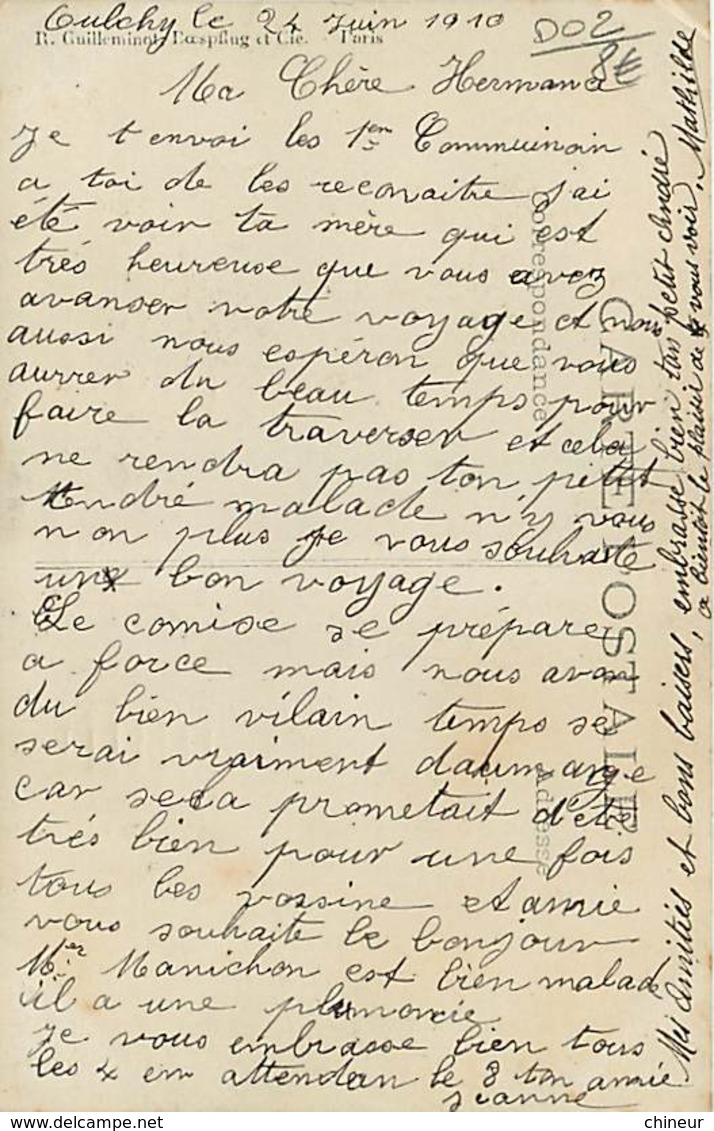 Oulchy le 24 Juin 1910
R. Guilleminot, Bœspflug et Cie. - Paris
DO2
8€
Ma Chère Hermana
Je t envoi les 1er Communian
a toi de les reconaitre j'ai
été voir ta mère qui est
trés heureuse que vous avez
avanser votre voyage et nous
aussi nous espéron que vous
aurrer du beau temps pour
faire la traverser et cela
ne rendra pas ton petit
André malade n'y vous
non plus je vous souhaite
une bon voyage.
Le comise se prépare
a force mais nous avon
du bien vilain temps se
serai vraiment daumange
car sela prometait d'etre
trés bien pour une fois
tous les vossine et amie
vous souhaite le bonjour
Mier Manichon est bien malade
il a une plumonie
Je vous embrasse bien tous
les 4 en attendan le 8 ton amie
Jeanne
Mes Amitiés et bons baisers, embrasse bien ton petit André
a bientôt le plaisir de vous voir, Mathilde
CARTE POSTALE
Correspondance
Adresse
chineur